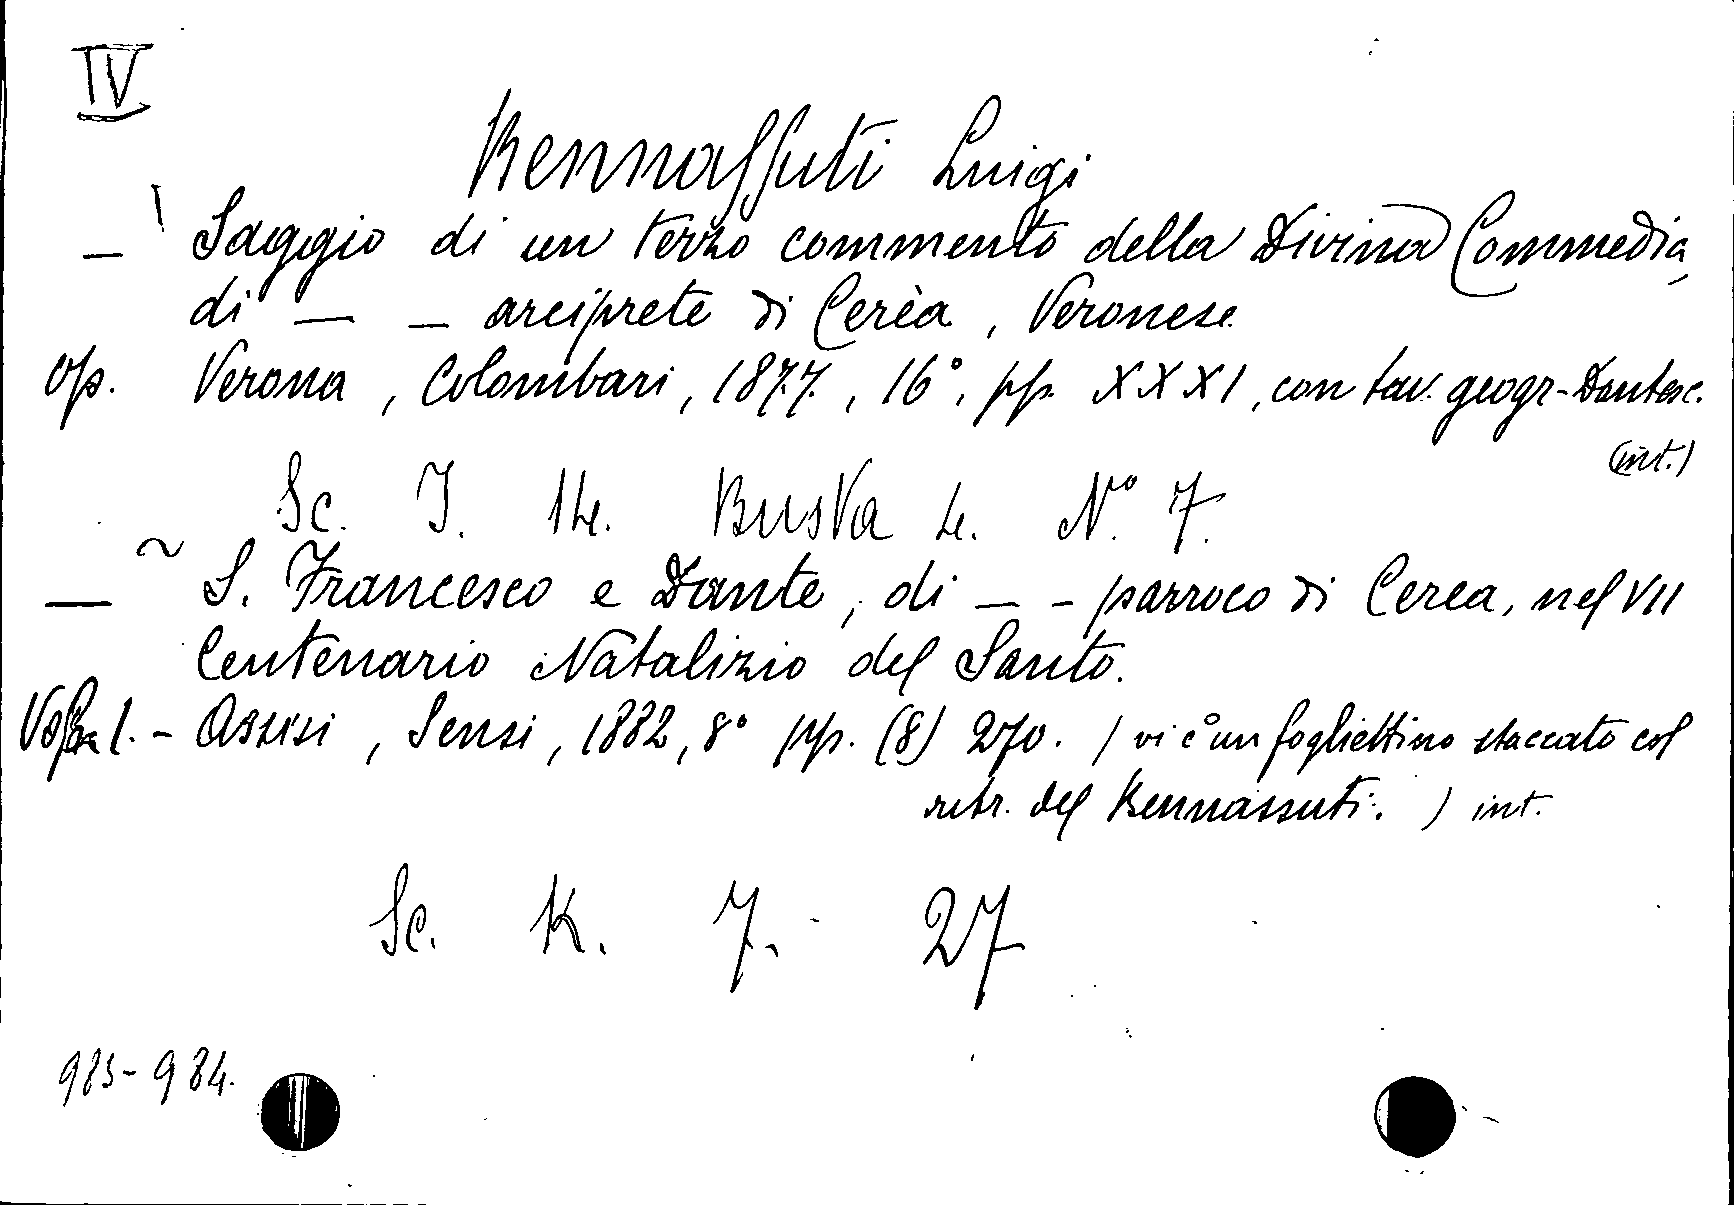 IV
Bennassuti Luigi
— 1 Saggio di un terzo commento della Divina Commedia,
di — — arciprete di Cerèa, Veronese.
Op. Verona, Colombari, 1877, 16°, pp. XXXI, con tav. geogr-Dantesc.
(int.)
Sc. I. 14. Busta 4. N° 7.
— 2 S. Francesco e Dante, di — — parroco di Cerea, nel VII
Centenario Natalizio del Santo.
Vol. 1. - Assisi, Sensi, 1882, 8° pp. (8) 270. (vi è un fogliettino staccato col
ritr. del Bennassuti.) int.
Sc. K. 7. 27
983-984.